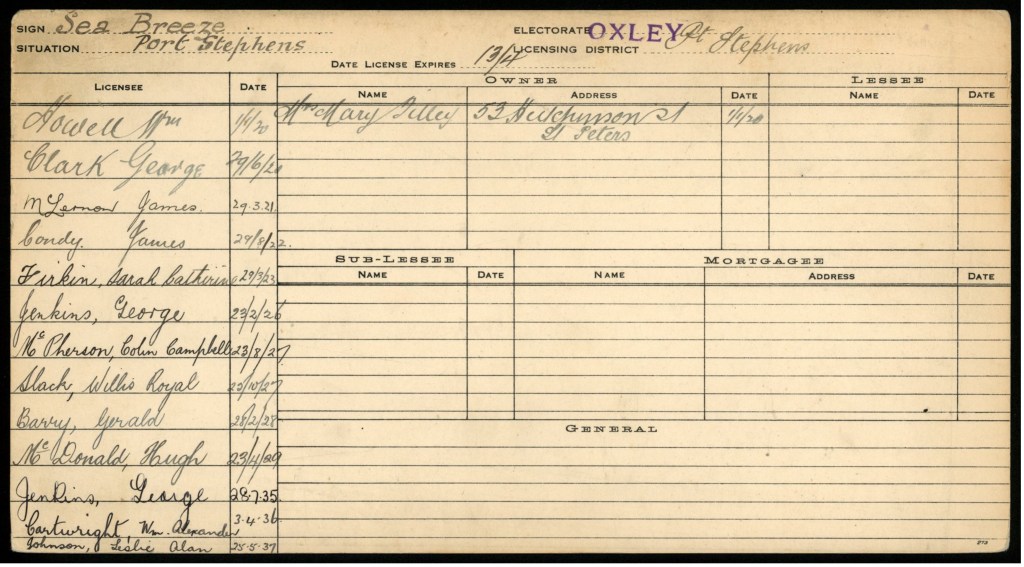 SIGN Sea Breeze
SITUATION Port Stephens
ELECTORATE OXLEY
LICENSING DISTRICT Pt Stephens
DATE LICENSE EXPIRES 13/4
LICENSEE DATE
OWNER
NAME ADDRESS DATE
LESSEE
NAME DATE
Howell Wm 1/1/20
Mrs Mary Tilley 53 Hutchinson St 1/1/20
St Peters
Clark George 29/6/20
McLernon James. 29.3.21.
Condy. James 29/8/22.
SUB-LESSEE
NAME DATE
MORTGAGEE
NAME ADDRESS DATE
Firkin, Sarah Catherine 29/3/23
Jenkins, George 23/2/26
McPherson, Colin Campbell 23/8/27
Slack, Willis Royal 25/10/27
Barry, Gerald 28/2/28
GENERAL
McDonald, Hugh 23/4/29
Jenkins, George 28.7.35.
Cartwright, Wm. Alexander 3-4-36
Johnson, Leslie Alan 25-5-37